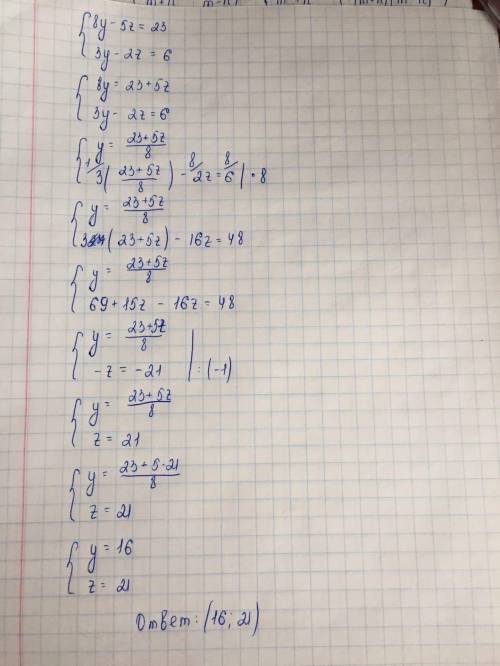 8y - 5z = 23
3y - 2z = 6
8y = 23+5z
3y - 2z = 6
y = 23+5z/8
1/ 3(23+5z/8) - 8/ 2z = 8/ 6 | · 8
y = 23+5z/8
3(23+5z) - 16z = 48
y = 23+5z/8
69+15z - 16z = 48
y = 23+5z/8
-z = -21 | : (-1)
y = 23+5z/8
z = 21
y = 23+5·21/8
z = 21
y = 16
z = 21
Ответ: (16; 21)